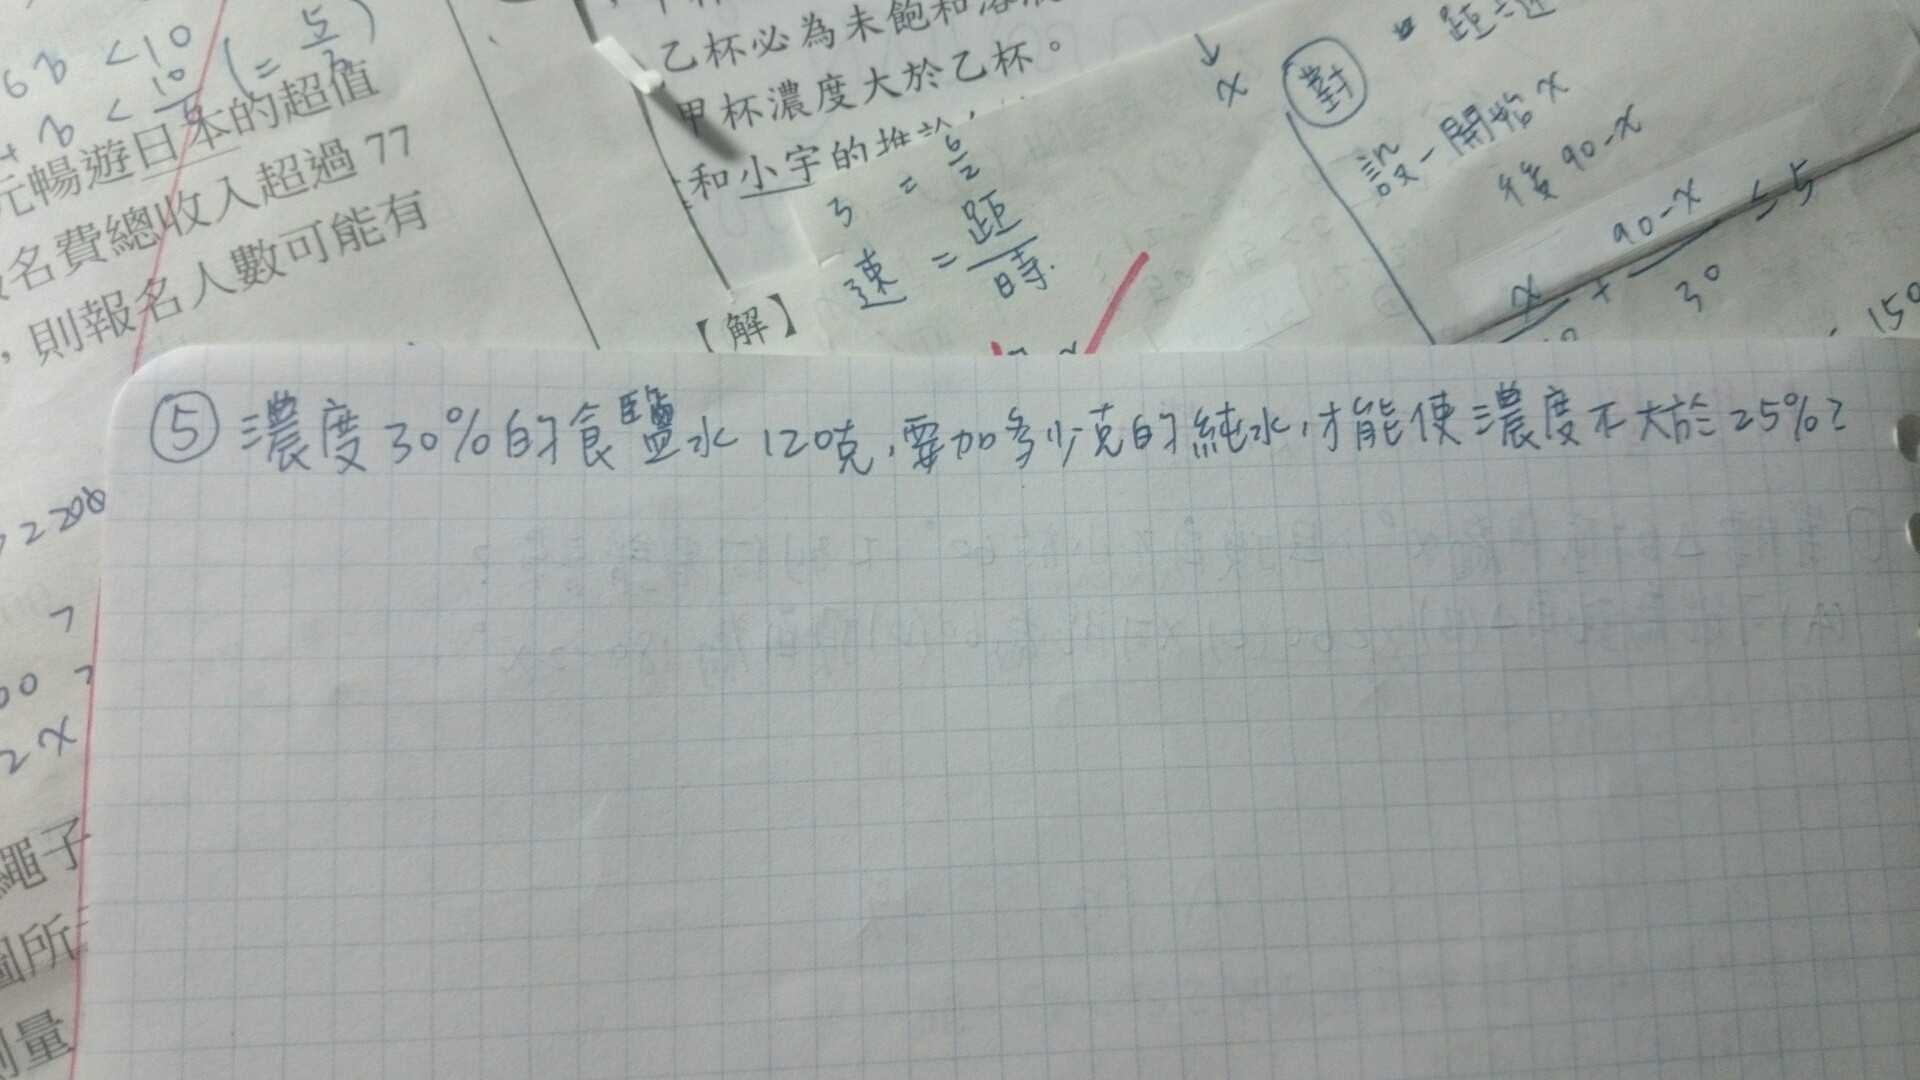 6b < 10
b < 10
(= 5
元暢遊日本的超值
名費總收入超過 77
,則報名人數可能有
乙杯必為未飽和溶液
甲杯濃度大於乙杯。
和小宇的推論
3 = 6/2
速 = 距/時
【解】
↓
x
對
設一開始 x
後 90-x
x/ + 90-x/30 ≤ 5
150
⑤濃度30%的食鹽水120克,要加多少克的純水,才能使濃度不大於25%?
≥200
7
00
2x
繩子
圖所
量